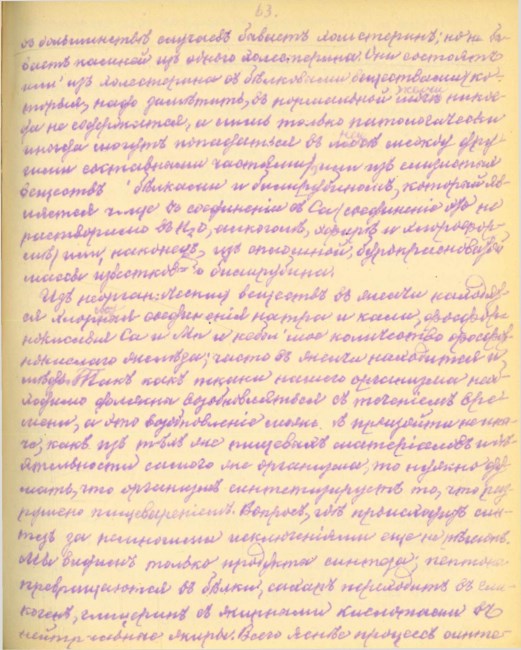 63.
въ большинствѣ случаевъ бываетъ холестеринъ; но не бы-
ваетъ камней изъ одного холестерина. Они состоятъ
или изъ холестерина съ бѣлковыми веществами, ко-
торыя, надо замѣтить, въ нормальной желчи никог-
да не содержатся, а лишь только патологически
иногда могутъ попадаться въ ней между дру-
гими составными частями, или изъ слизистыхъ
веществъ съ бѣлками и билирубиномъ, который яв-
ляется чаще въ соединеніи съ Ca (соединеніе это не
растворимо въ H₂O, алкоголѣ, эфирѣ и хлорофор-
мѣ) или, наконецъ, изъ сплошной, бурокрасноватой
массы известковаго билирубина.
Изъ неорганическихъ веществъ въ желчи находят-
ся хлористыя соединенія натра и кали, фосфорно-
кислыя Ca и Mn и небольшое количество фосфор-
нокислаго желѣза; часто въ желчи находится и
мѣдь. Такъ какъ ткани нашего организма не-
обходимо должны возобновляться съ теченіемъ вре-
мени, а это возобновленіе можетъ произойти не ина-
че, какъ изъ тѣхъ же пищевыхъ матеріаловъ и дѣ-
ятельности самого же организма, то нужно ду-
мать, что организмъ синтезируетъ то, что раз-
рушено пищевареніемъ. Вопросъ, гдѣ происходитъ син-
тезъ за немногими исключеніями еще не рѣшенъ.
Мы видимъ только продукты синтеза; пептоны
превращаются въ бѣлки, сахаръ переходитъ въ гли-
когенъ, глицеринъ съ жирными кислотами въ
нейтральные жиры. Всего яснѣе процессъ синте-